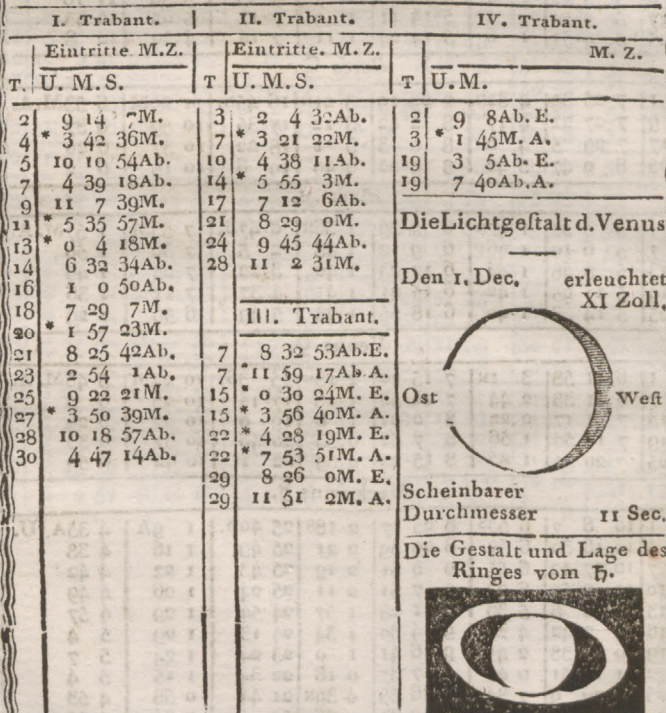 I. Trabant.
Eintritte M.Z.
T. U. M. S.
2 9 14 7M.
4 * 3 42 36M.
5 10 10 54Ab.
7 4 39 18Ab.
9 11 7 39M.
11 * 5 35 57M.
13 * 0 4 18M.
14 6 32 34Ab.
16 1 0 50Ab.
18 7 29 7M.
20 * 1 57 23M.
21 8 25 42Ab.
23 2 54 1Ab.
25 9 22 21M.
27 * 3 50 39M.
28 10 18 57Ab.
30 4 47 14Ab.
II. Trabant.
Eintritte. M.Z.
T U. M. S.
3 2 4 32Ab.
7 * 3 21 22M.
10 4 38 11Ab.
14 * 5 55 3M.
17 7 12 6Ab.
21 8 29 0M.
24 9 45 44Ab.
28 11 2 31M.
III. Trabant.
7 8 32 53Ab.E.
7 * 11 59 17Ab A.
15 * 0 30 24M. E.
15 * 3 56 40M. A.
22 * 4 28 19M. E.
22 * 7 53 51M. A.
29 8 26 0M. E.
29 11 51 2M. A.
IV. Trabant.
M. Z.
T U. M.
2 9 8Ab. E.
3 * 1 45M. A.
19 3 5Ab. E.
19 7 40Ab. A.
Die Lichtgeſtalt d. Venus
Den 1. Dec. erleuchtet
XI Zoll.
Oſt Weſt
Scheinbarer
Durchmeſſer 11 Sec.
Die Geſtalt und Lage des
Ringes vom ♄.